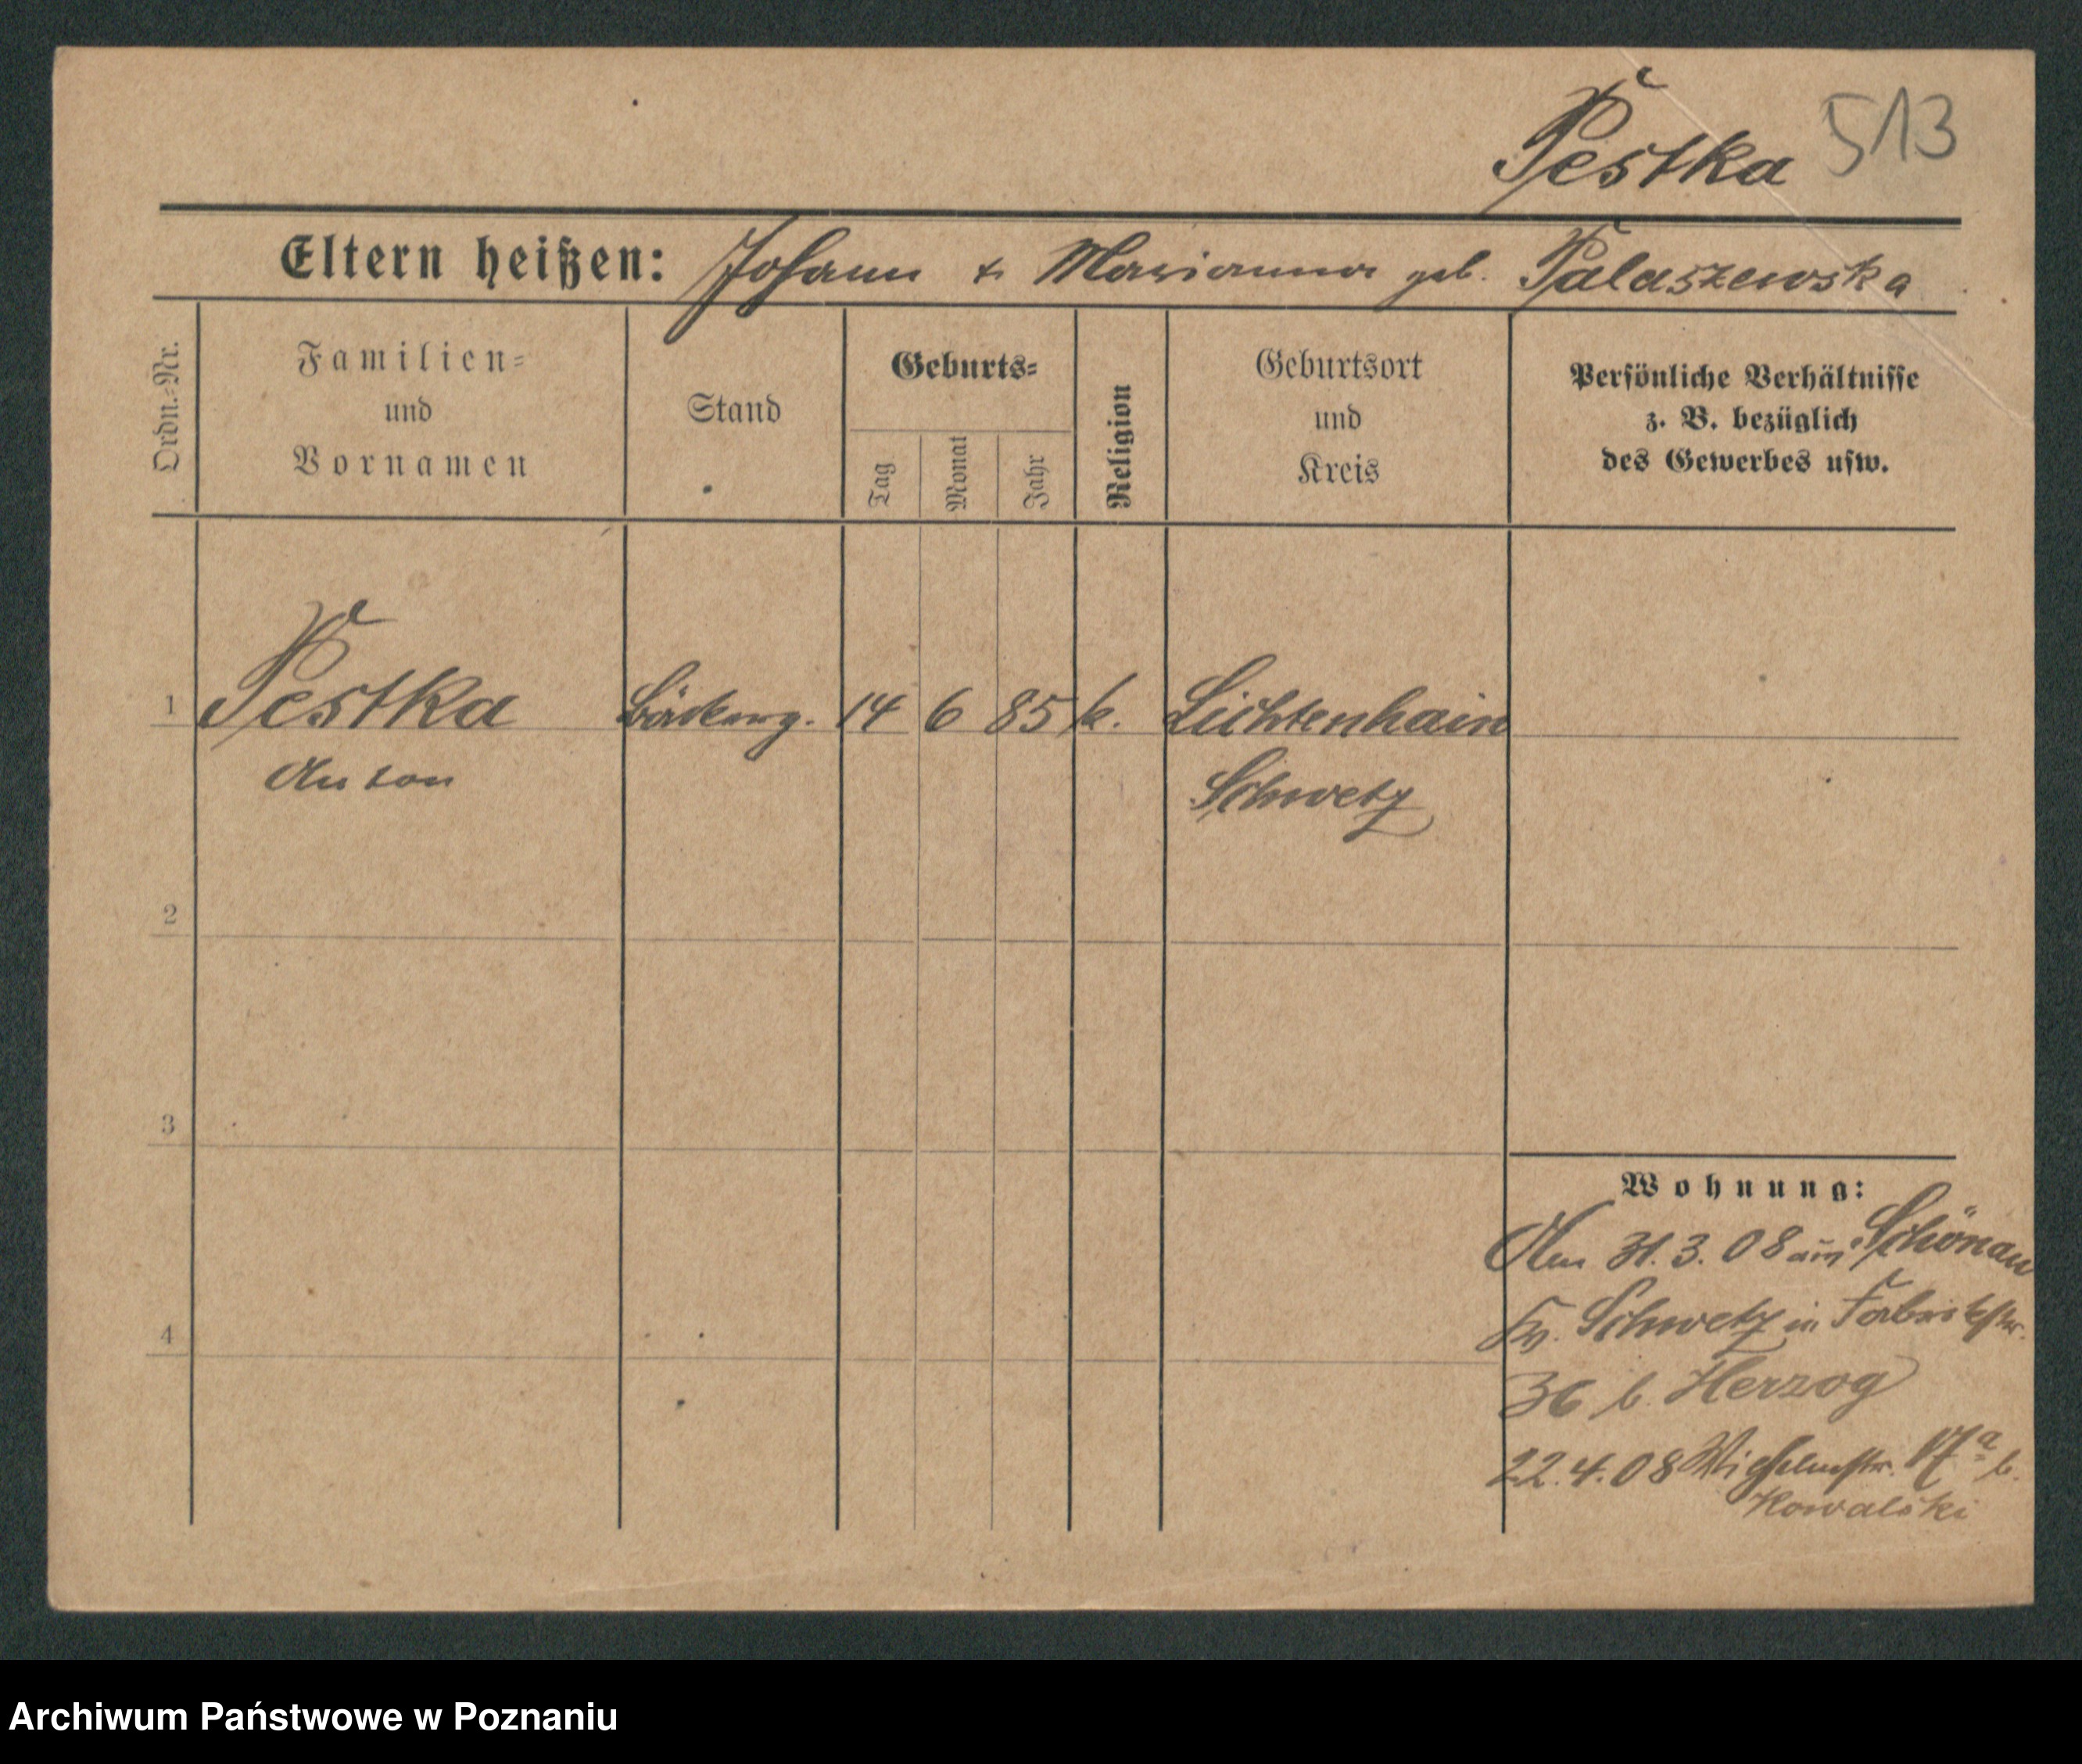 Pestka 513
Eltern heißen: Johann & Marianna geb. Palaszewska
Ordn.-Nr.
Familien-
und
Vornamen
Stand
Geburts-
Tag
Monat
Jahr
Religion
Geburtsort
und
Kreis
Persönliche Verhältnisse
z. B. bezüglich
des Gewerbes usw.
1 Pestka Bäckerg. 14 6 85 k. Lichtenhain
Anton Schwetz
2
3
4
Wohnung:
Am 31.3.08 aus Schönau
Kr. Schwetz in Fabrikstr.
36 b. Herzog
22.4.08 Wilhelmstr. 17a b.
Kowalski
Archiwum Państwowe w Poznaniu